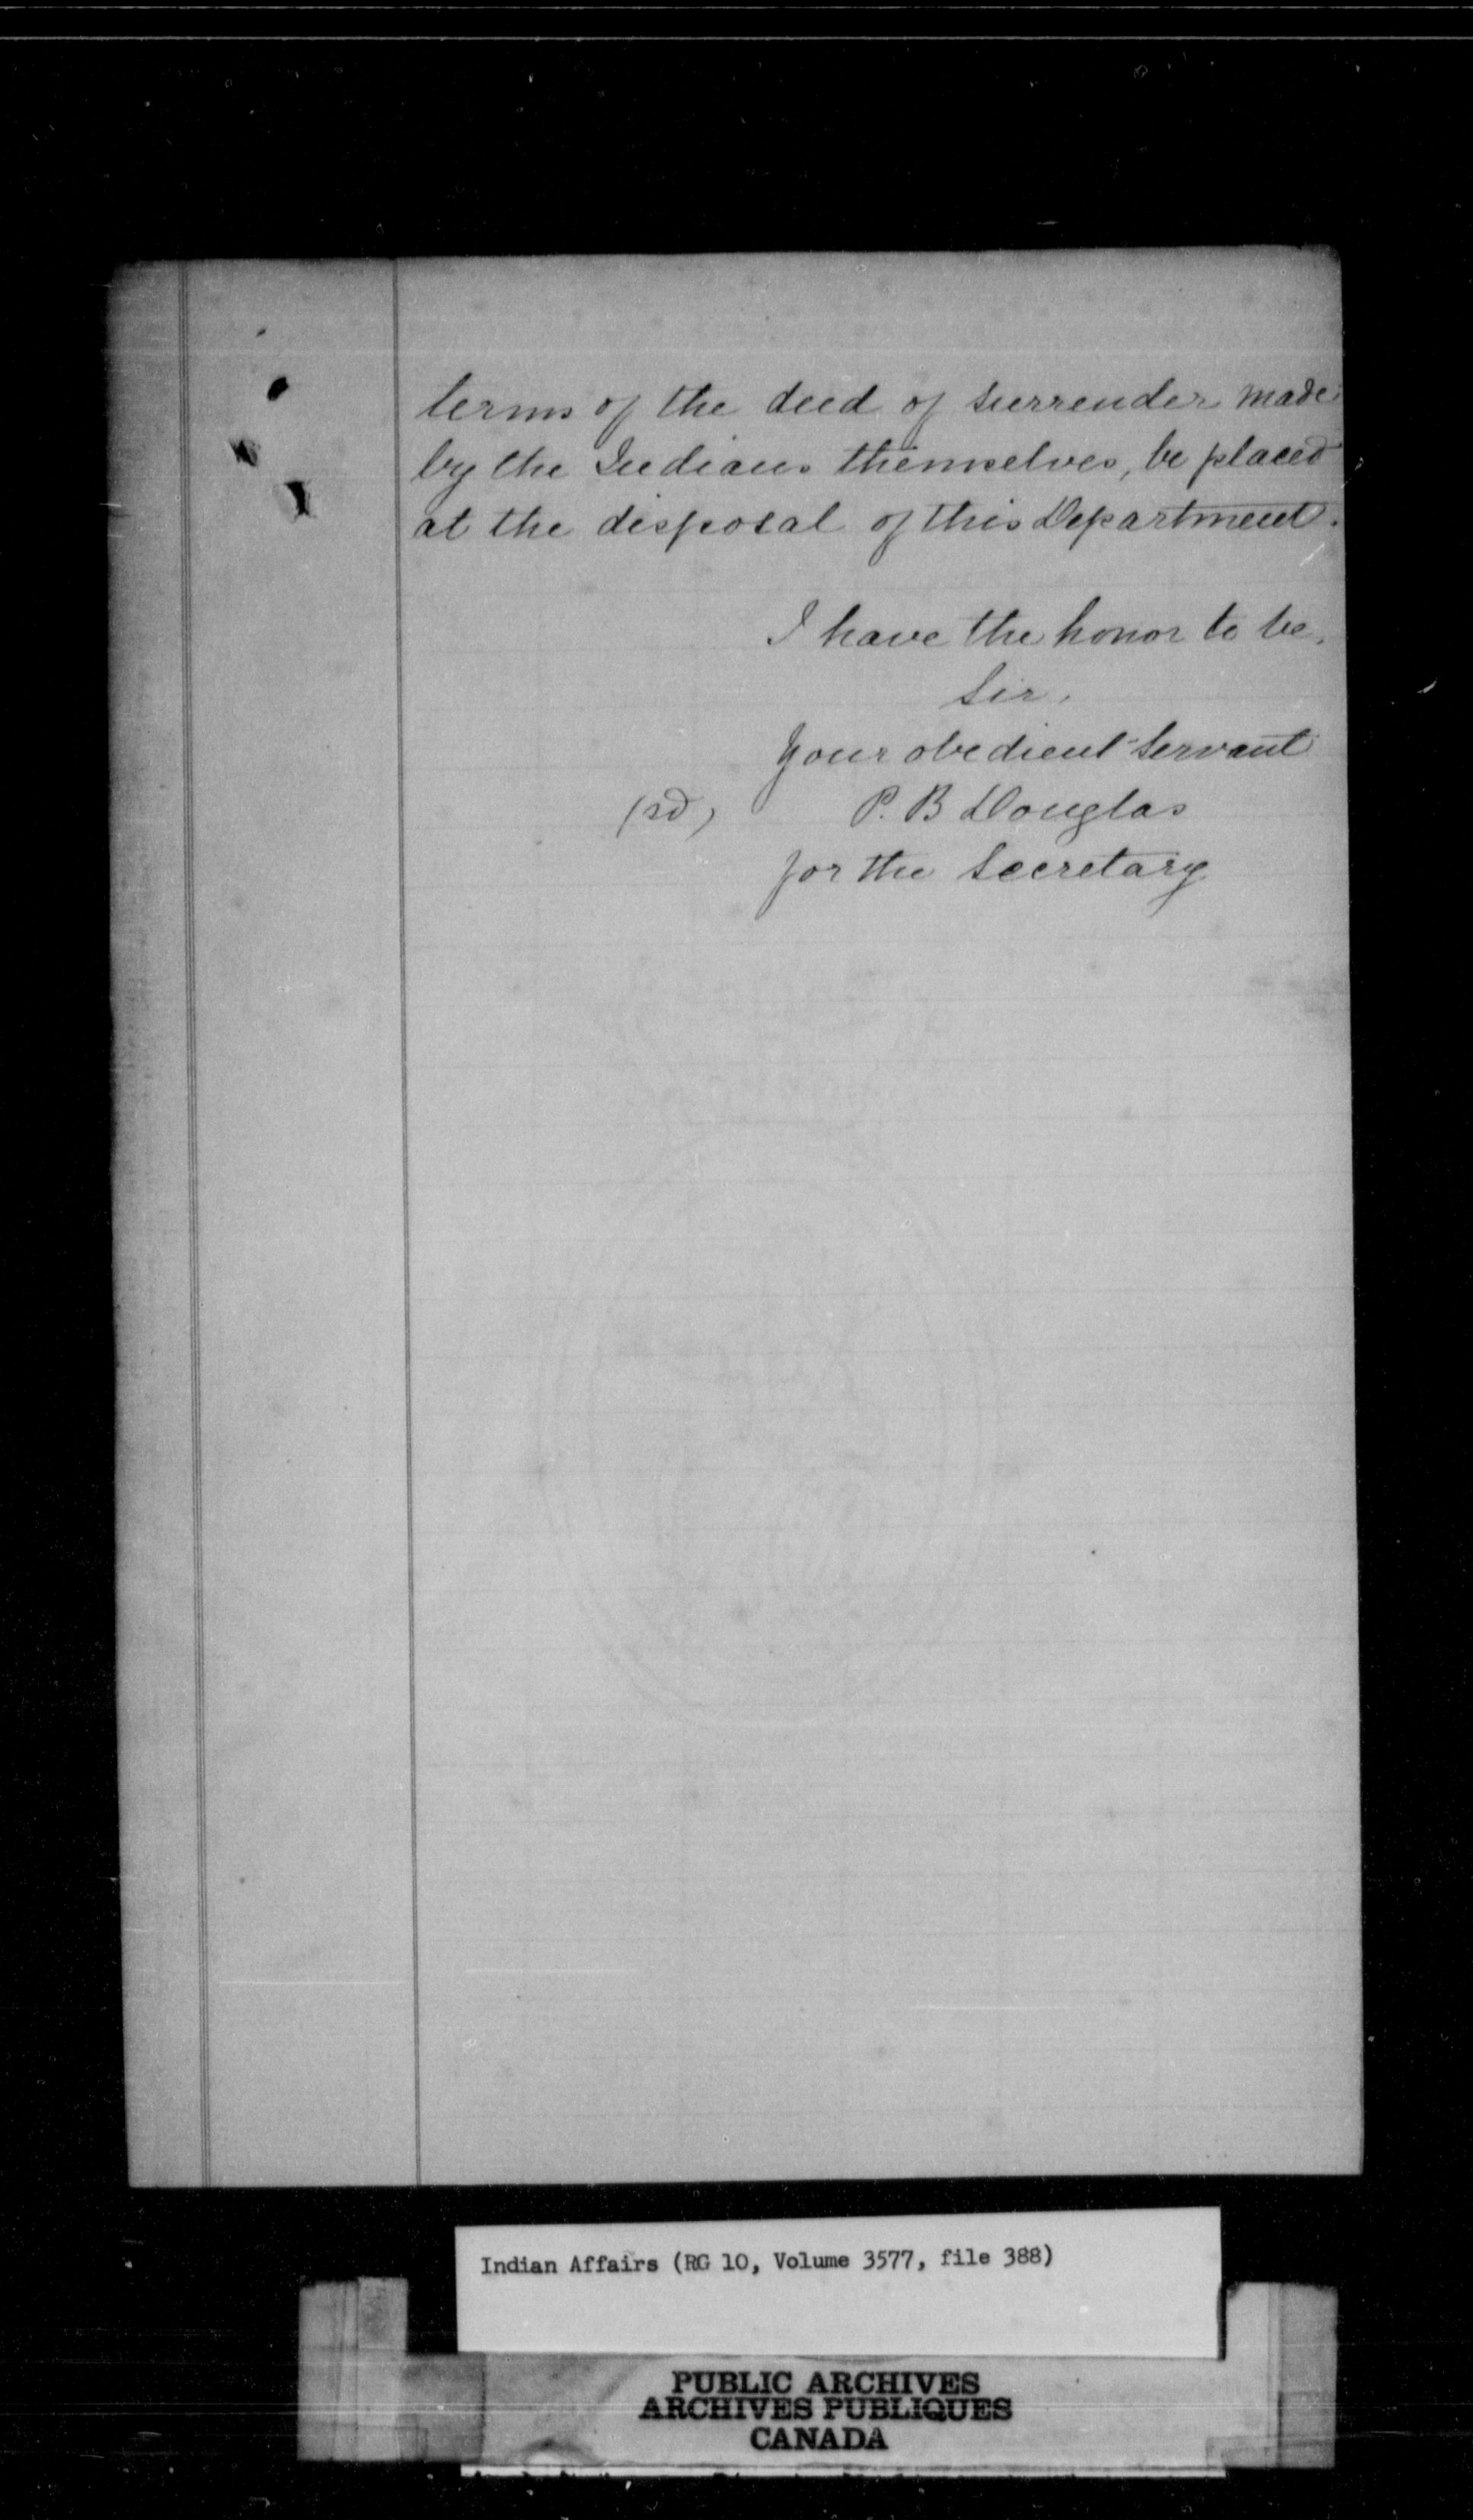 terms of the deed of surrender made
by the Indians themselves, be placed
at the disposal of this Department.
I have the honor to be,
Sir,
Your obedient Servant
(sd) P. B Douglas
for the Secretary
Indian Affairs (RG 10, Volume 3577, file 388)
PUBLIC ARCHIVES
ARCHIVES PUBLIQUES
CANADA